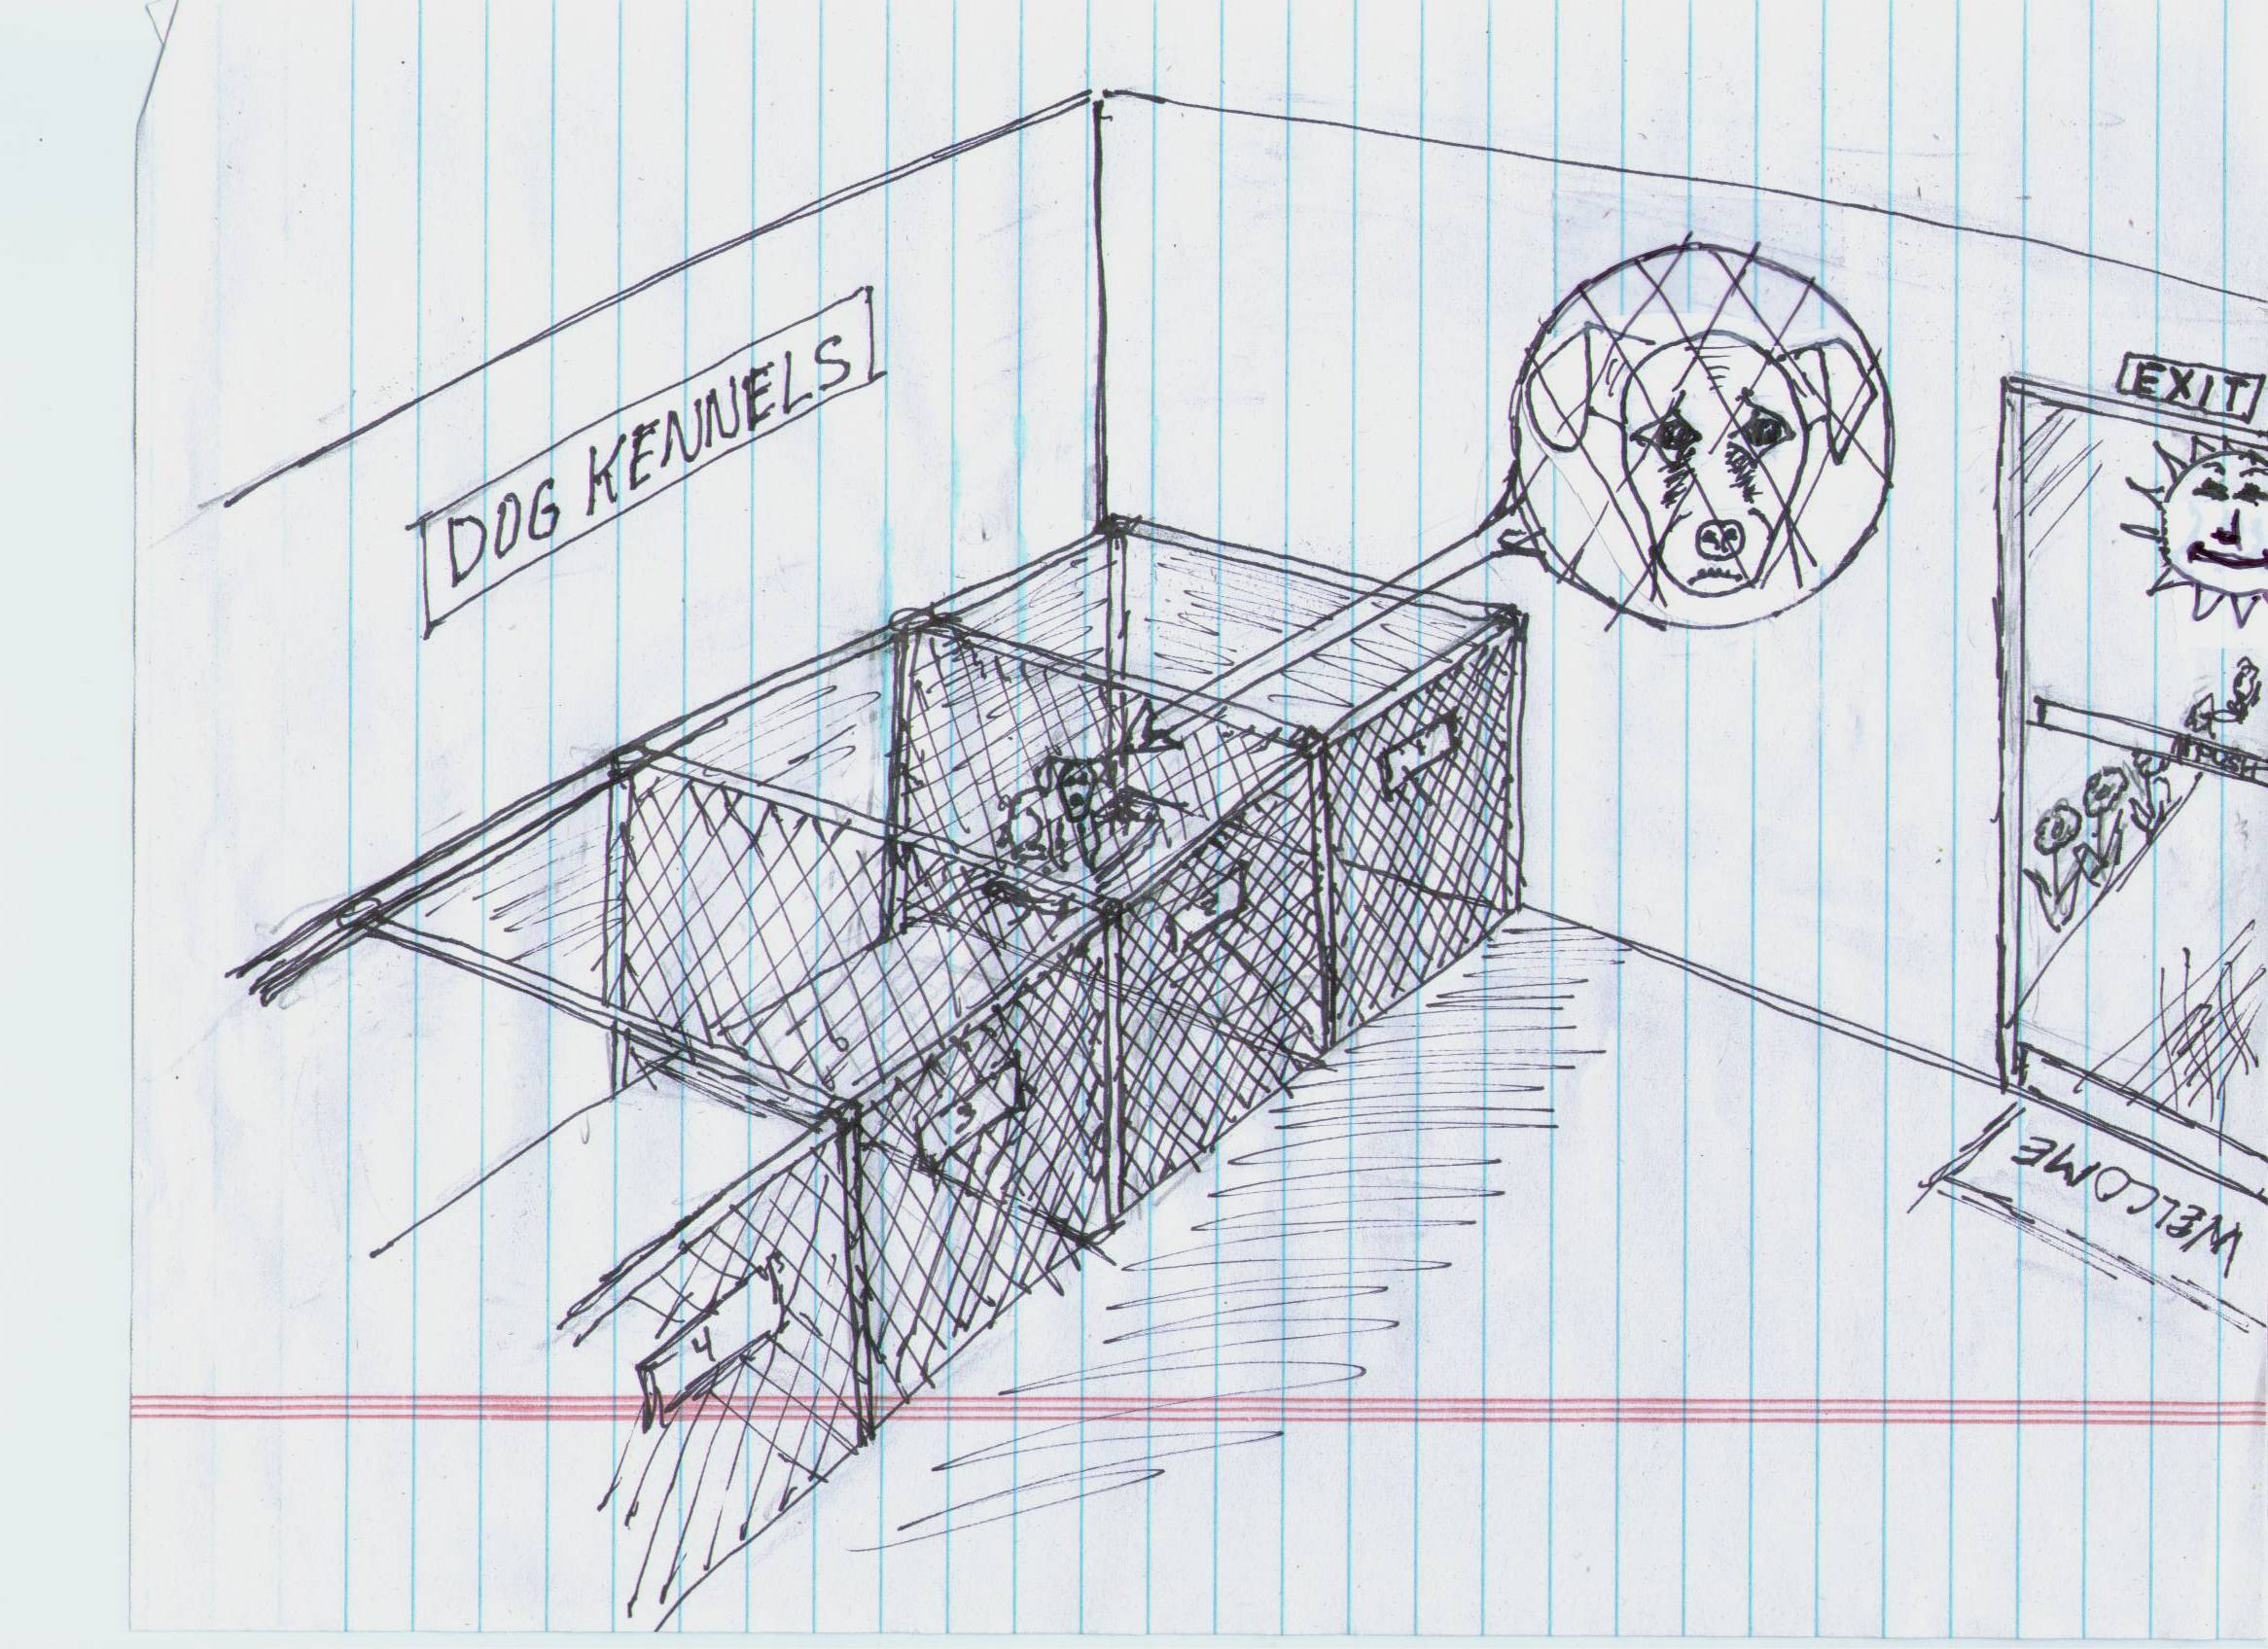 DOG KENNELS
EXIT
PUSH
1
2
3
4
WELCOME